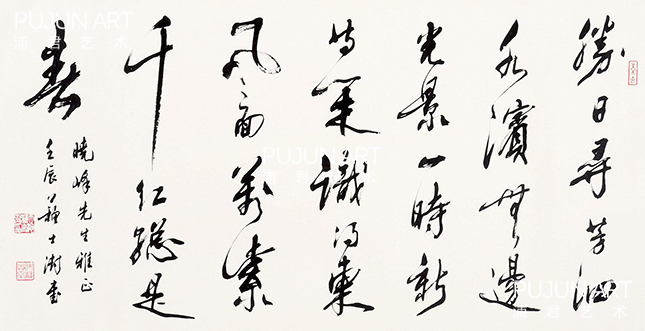 勝日尋芳泗
水濱無邊
光景一時新
等閒識得東
風面萬紫
千紅總是
春
曉峰先生雅正
壬辰蘇士澍書
PUJUN ART
浦君艺术
PUJUN ART
PUJUN ART
PUJUN ART